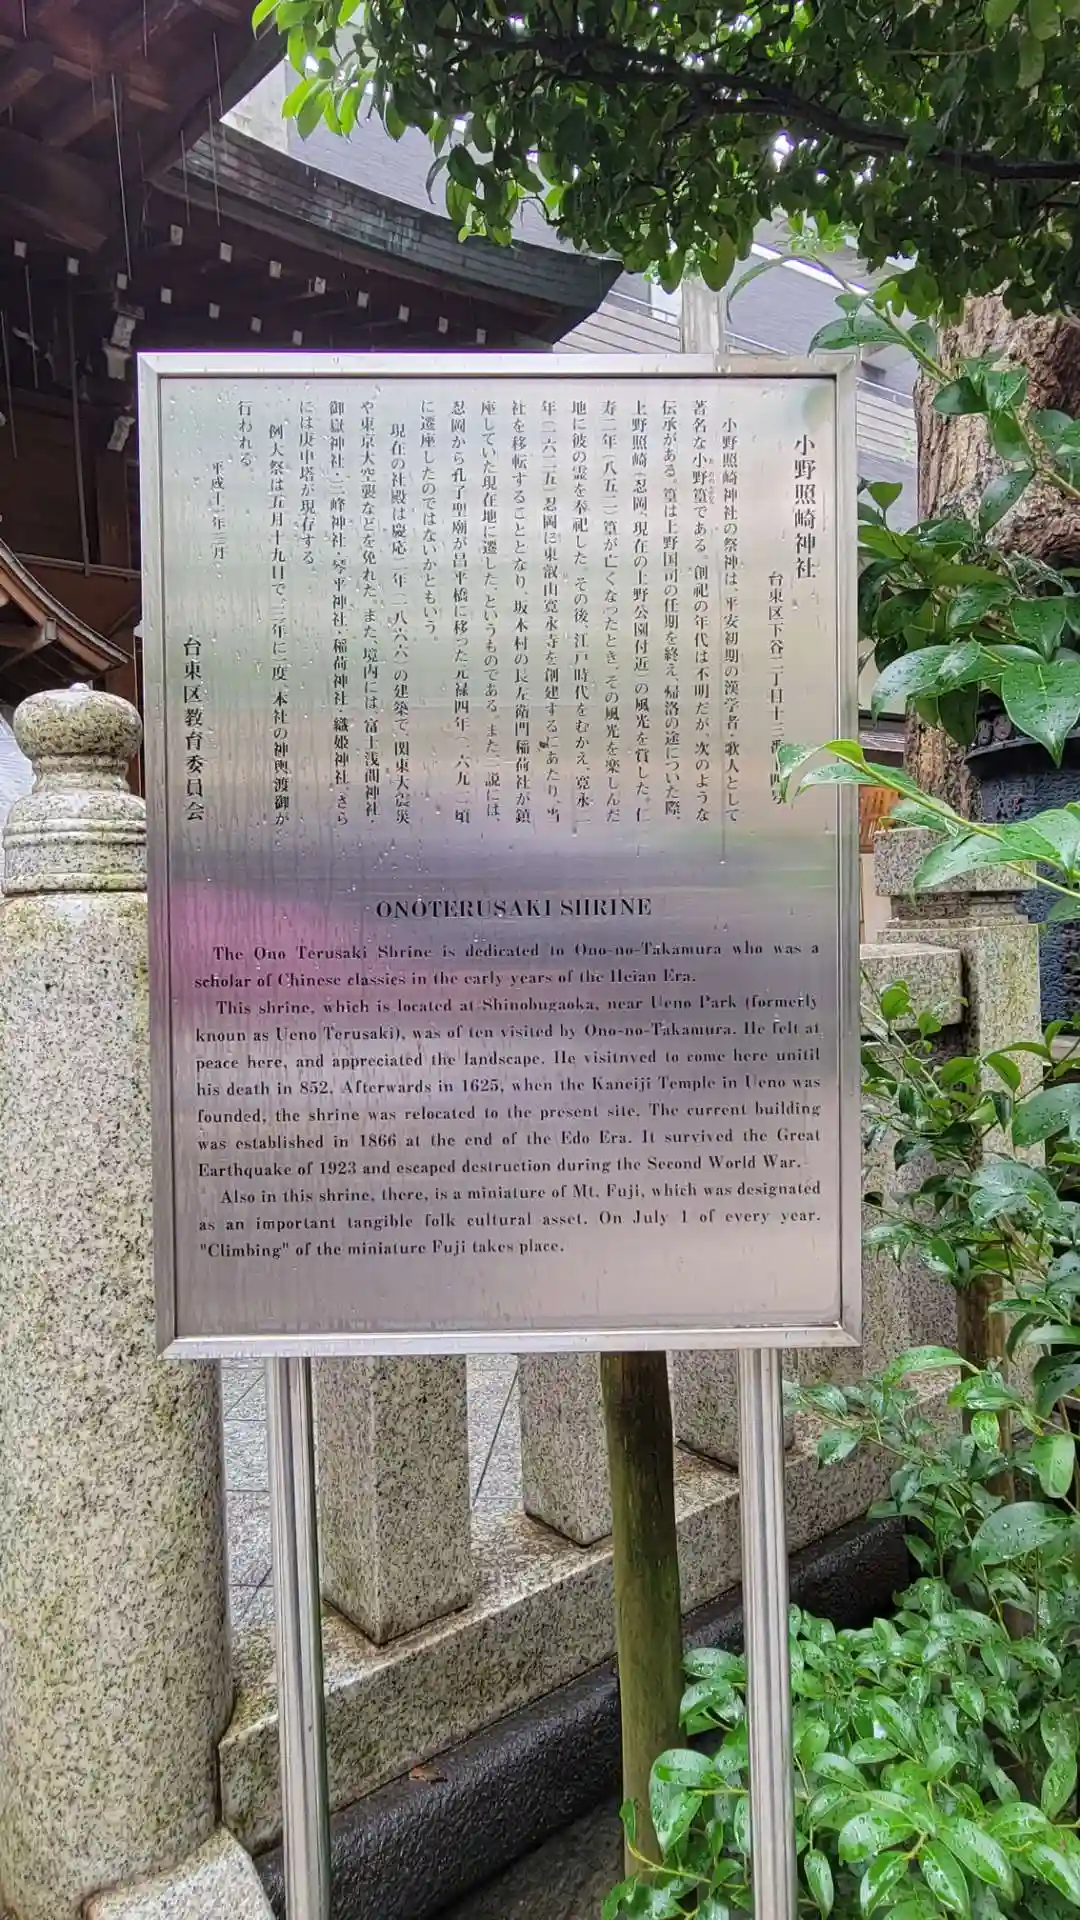 小野照崎神社
台東区下谷二丁目十三番十四号
小野照崎神社の祭神は、平安初期の漢学者・歌人として
著名な小野篁である。創祀の年代は不明だが、次のような
伝承がある。篁は上野国司の任期を終え、帰洛の途についた際、
上野照崎(忍岡、現在の上野公園付近)の風光を賞した。仁
寿二年(八五二)篁が亡くなったとき、その風光を楽しんだ
地に彼の霊を奉祀した。その後、江戸時代をむかえ、寛永二
年(一六二五)忍岡に東叡山寛永寺を創建するにあたり、当
社を移転することとなり、坂本村の長左衛門稲荷社が鎮
座していた現在地に遷した、というものである。また一説には、
忍岡から孔子聖廟が昌平橋に移った元禄四年(一六九一)頃
に遷座したのではないかともいう。
現在の社殿は慶応二年(一八六六)の建築で、関東大震災
や東京大空襲などを免れた。また、境内には、富士浅間神社・
御嶽神社・三峰神社・琴平神社・稲荷神社・織姫神社、さら
には庚申塔が現存する。
例大祭は五月十九日で、三年に一度、本社の神輿渡御が
行われる。
平成十一年三月
台東区教育委員会
ONOTERUSAKI SHRINE
The Ono Terusaki Shrine is dedicated to Ono-no-Takamura who was a
scholar of Chinese classics in the early years of the Heian Era.
This shrine, which is located at Shinobugaoka, near Ueno Park (formerly
knoun as Ueno Terusaki), was of ten visited by Ono-no-Takamura. He felt at
peace here, and appreciated the landscape. He visitnved to come here unitil
his death in 852. Afterwards in 1625, when the Kaneiji Temple in Ueno was
founded, the shrine was relocated to the present site. The current building
was established in 1866 at the end of the Edo Era. It survived the Great
Earthquake of 1923 and escaped destruction during the Second World War.
Also in this shrine, there, is a miniature of Mt. Fuji, which was designated
as an important tangible folk cultural asset. On July 1 of every year.
"Climbing" of the miniature Fuji takes place.